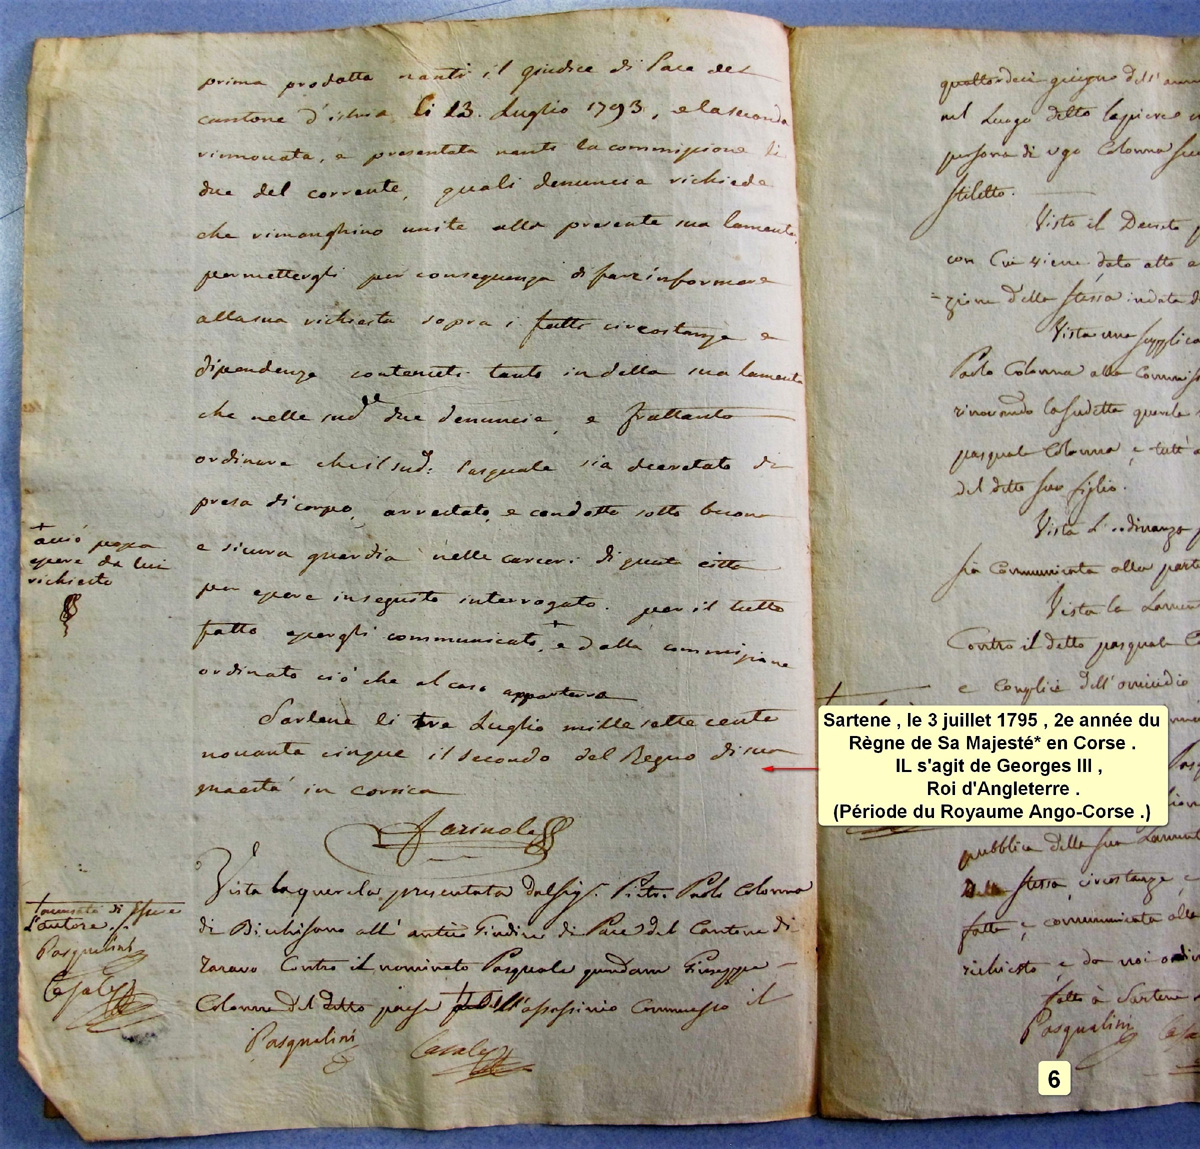 prima prodotta nanti il giudice di Pace del
cantone d'istria li 13. Luglio 1793, e la seconda
rinnovata, e presentata nanti la commissione li
due del corrente, quali denuncia richiede
che rimanghino unite alla presente sua lamenta,
permettergli per conseguenza di fare informare
alla sua richiesta sopra i fatti circostanze e
dipendenze contenuti tanto in della sua lamenta
che nelle sudde due denuncia, e frattanto
ordinare che il sudo: Pasquale sia decretato di
presa di corpo, arrestato, e condotto sotto buona
e sicura guardia nelle carceri di questa città
per essere in seguito interrogato. per il tutto
fatto essergli communicato,+ e dalla commissione
ordinato ciò che al caso apparterra
Sartene li tre Luglio mille sette cento
novanta cinque il secondo del Regno di sua
maestà in corsica
Farinole
+ acciò possa
essere da lui
richiesto
Vista la querela presentata dal Sigr. Pietro Paolo Colonna
di Bichisano all' antico Giudice di Pace del Cantone di
Taravo Contro il nominato Pasquale quondam Giuseppe
Colonna del detto paese + dell'assassinio Commesso il
Pasqualini Casale
+ accusato di essere
l'autore
Pasqualini
Casale
quattordeci giugno dell'
nel Luogo detto
persona di ugo Colonna
Stiletto.
Visto il Decreto
con Cui viene dato atto a
=zione della stessa in data
Vista una supplica
Paolo Colonna alla Commiss
rinovando la sudetta querela
pasquale Colonna, e tutt'
del detto suo figlio.
Vista L'ordinanza
sia Communicata alla parte
Vista la Lament
Contro il detto pasquale Co
e complici dell'omicidio
pubblica della sua Lament
stessa, circostanze, e
fatto, e communicata alla
richiesto e da noi ordin
fatto à Sartene
Pasqualini Casa
Sartene , le 3 juillet 1795 , 2e année du
Règne de Sa Majesté* en Corse .
IL s'agit de Georges III ,
Roi d'Angleterre .
(Période du Royaume Ango-Corse .)
6